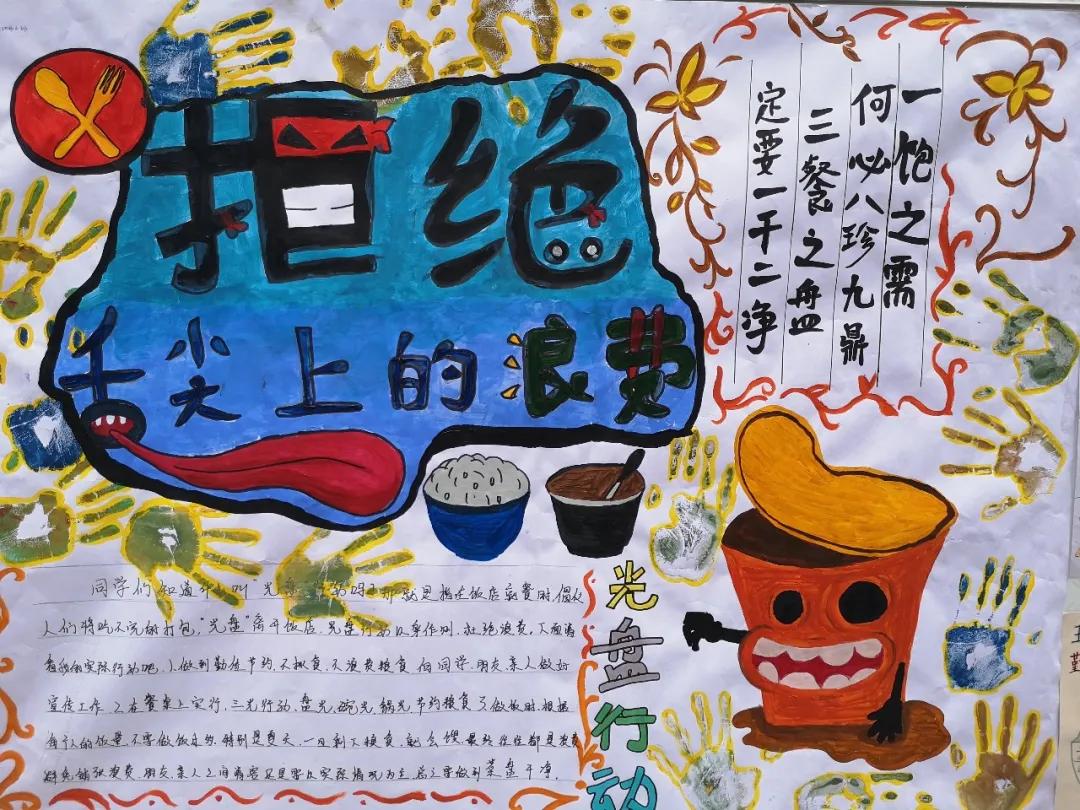 拒绝
舌尖上的浪费
一饱之需
何必八珍九鼎
三餐之盘
定要一干二净
同学们知道什么叫“光盘行动吗？那就是指在饭店就餐时,倡议
人们将吃不完的打包,“光盘”离开饭店.光盘行动从身作则.杜绝浪费,下面请
看我的实际行动吧.1.做到勤俭节约.不挑食.不浪费粮食向同学.朋友亲人做好
宣传工作.2.在餐桌上实行.三光行动.盘光.碗光.锅光.节约粮食了做饭时.根据
每个人的饭量.不要做饭过多.特别是夏天.一旦剩下粮食.就会馊最终往往都是浪费
避免铺张浪费.朋友亲人之间请客只是要以实际情况为主.总之要做到菜盘干净.
光盘行动